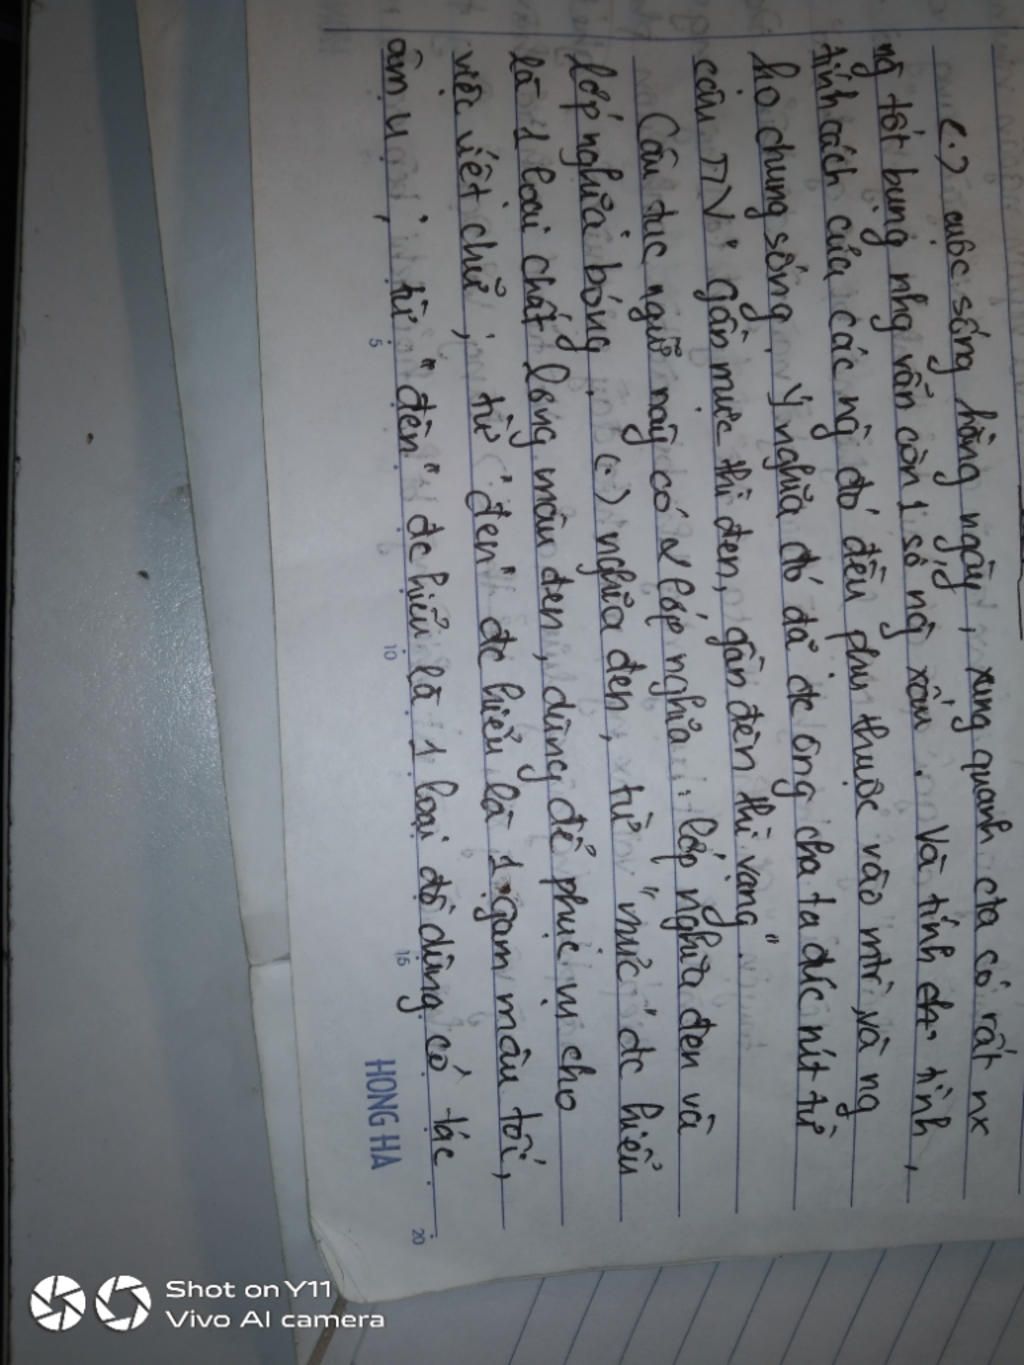 (.) cuộc sống hằng ngày, xung quanh cta có rất nx
ng tốt bụng nhg vẫn còn 1 số ng xấu. Và tính tình,
tính cách của các ng đó đều phụ thuộc vào mtr và ng
họ chung sống. Ý nghĩa đó đả đc ông cha ta đúc nút từ
câu TN "gần mực thì đen, gần đèn thì vạng".
Câu tục ngữ này có 2 lớp nghĩa: lớp nghĩa đen và
lớp nghĩa bóng. (.) nghĩa đen, từ "mực" đc hiểu
là 1 loại chất lỏng màu đen, dùng để phục vụ cho
việc viết chữ, từ "đen" đc hiểu là 1 gam màu tối,
âm u, từ "đèn" đc hiểu là 1 loại đồ dùng có tác
5
10
15
20
HONG HA
Shot on Y11
Vivo AI camera